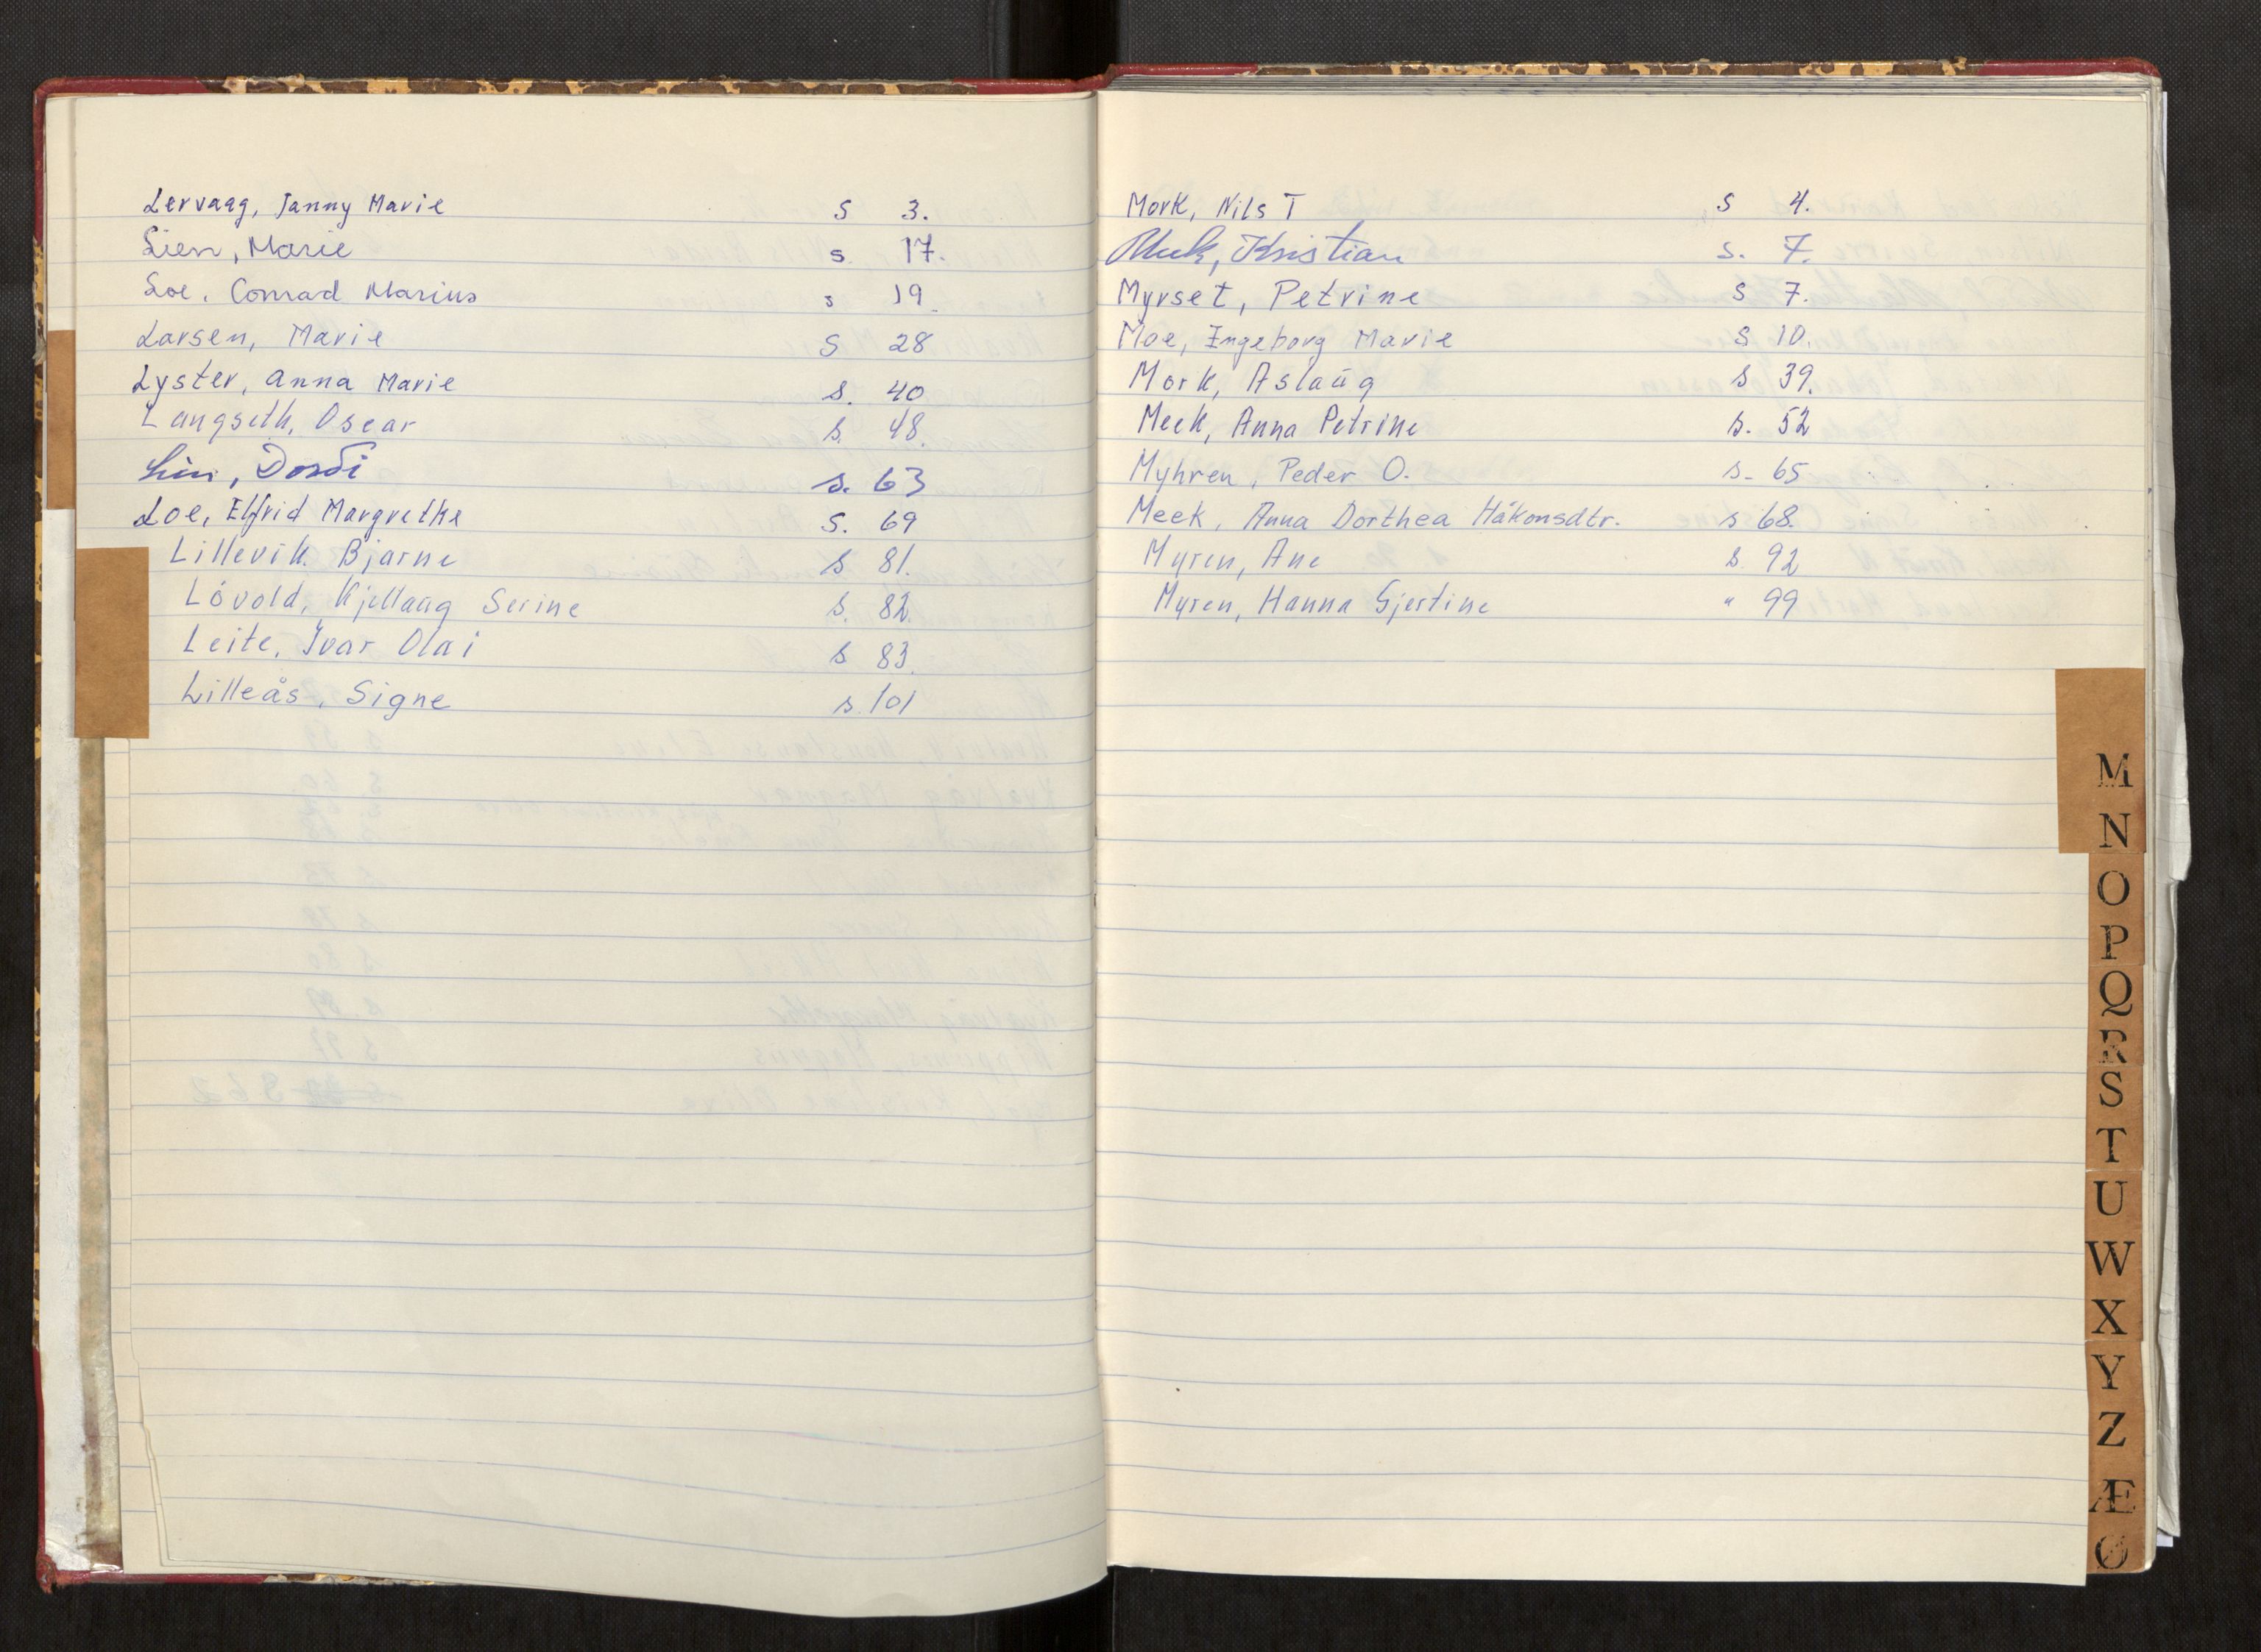 Lervaag, Janny Marie S 3.
Lien, Marie s. 17.
Loe, Conrad Marius s 19.
Larsen, Marie S 28
Lyster, Anna Marie s. 40
Langseth, Oscar s. 48.
Lien, Dordi s. 63
Loe, Elfrid Margrethe s. 69
Lillevik. Bjarne s 81.
Lövold, Kjellaug Serine s. 82.
Leite, Ivar Olai s 83.
Lilleås, Signe s. 101
Mork, Nils T S 4.
Meek, Kristian s. 7.
Myrset, Petrine S 7.
Moe, Ingeborg Marie s 10.
Mork, Aslaug s 39.
Meek, Anna Petrine s. 52
Myhren, Peder O. s. 65
Meek, Anna Dorthea Håkonsdtr. s 68.
Myren, Ane s. 92
Myren, Hanna Gjertine " 99
M
N
O
P
Q
R
S
T
U
W
X
Y
Z
Æ
Ø